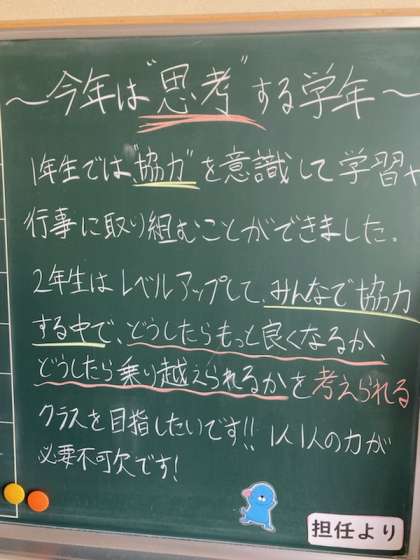 ～今年は"思考"する学年～
1年生では"協力"を意識して学習や
行事に取り組むことができました。
2年生はレベルアップして、みんなで協力
する中で、どうしたらもっと良くなるか、
どうしたら乗り越えられるかを考えられる
クラスを目指したいです!! 1人1人の力が
必要不可欠です!
担任より